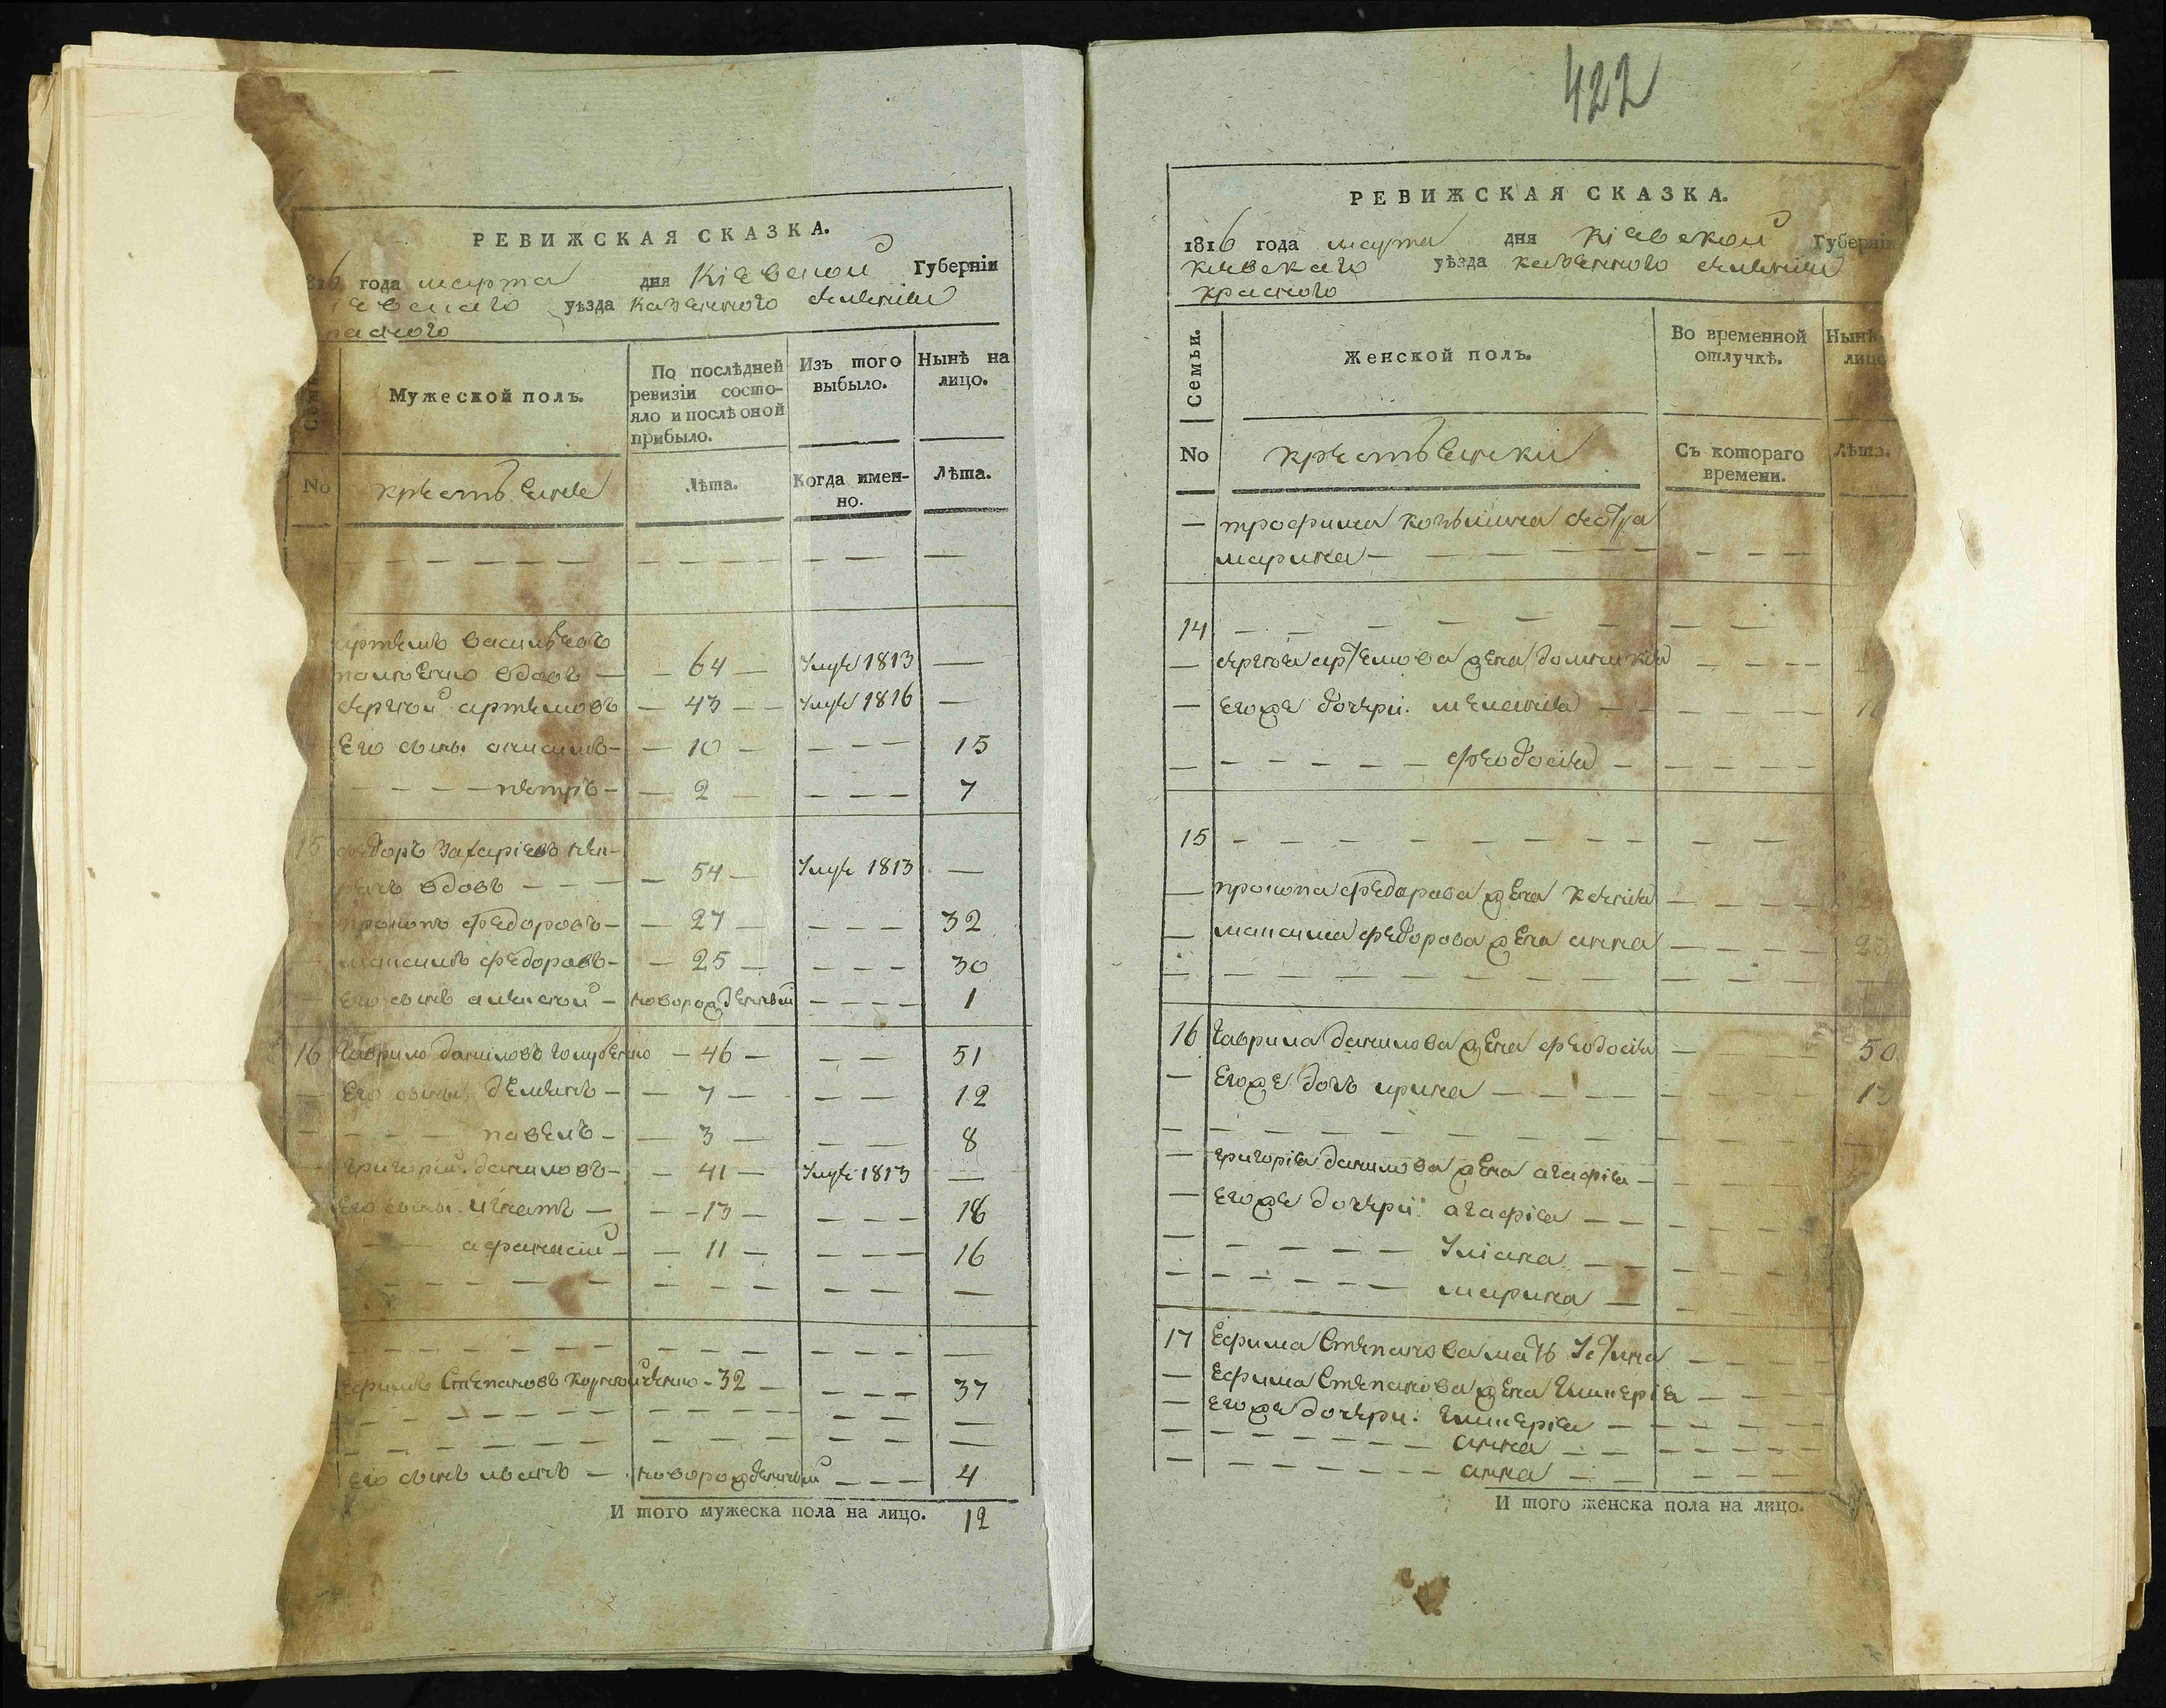 РЕВИЖСКАЯ СКАЗКА.
816 года марта дня Кіевской Губерніи
іевскаго уѣзда казенного селенія
расного
Семьи.
Мужеской полъ.
По послѣдней ревизіи состо-
яло и послѣ оной
прибыло.
Изъ того
выбыло.
Нынѣ на
лицо.
No
крестьяне
Лѣта.
Когда имен-
но.
Лѣта.
артемъ васильевъ
вдовъ — 64 — Умре 1813 —
сергей артемовъ — 43 — Умре 1816 —
Его сыны: анисимъ — 10 — 15
петръ — 2 — 7
15 федоръ захаріевъ
вдовъ — 54 — Умре 1813 —
прокопъ федоровъ — 27 — 32
максимъ федоровъ — 25 — 30
его сынъ алексей — новорожденный — 1
16 гаврило даниловъ голубенко — 46 — 51
Его сыны: демянъ — 7 — 12
павелъ — 3 — 8
григорій даниловъ — 41 — Умре 1813 —
Его сыны: игнатъ — 13 — 18
афанасій — 11 — 16
Ефимъ Степановъ — 32 — 37
его сынъ иванъ — новорожденный — 4
И того мужеска пола на лицо. 12
422
РЕВИЖСКАЯ СКАЗКА.
1816 года марта дня Кіевской Губерніи
кіевскаго уѣзда казенного селенія
красного
Семьи.
Женской полъ.
Во временной
отлучкѣ.
Нынѣ
лицо
No
крестьянки
Съ котораго
времени.
Лѣта.
— трофима сестра
марина —
14
— сергея артемова жена домникія
— его же дочери: меланія
— феодосія
15
— прокопа федорова жена ксенія
— максима федорова жена анна — 25
16 гаврила данилова жена феодосія — 50
— Его же дочь ирина
— григорія данилова жена агафія
— его же дочери: агафія
— Уліана
— марина
17 Ефима Степанова мать Устина
— Ефима Степанова жена гликерія
— его же дочери: гликерія
— анна
— анна
И того женска пола на лицо.